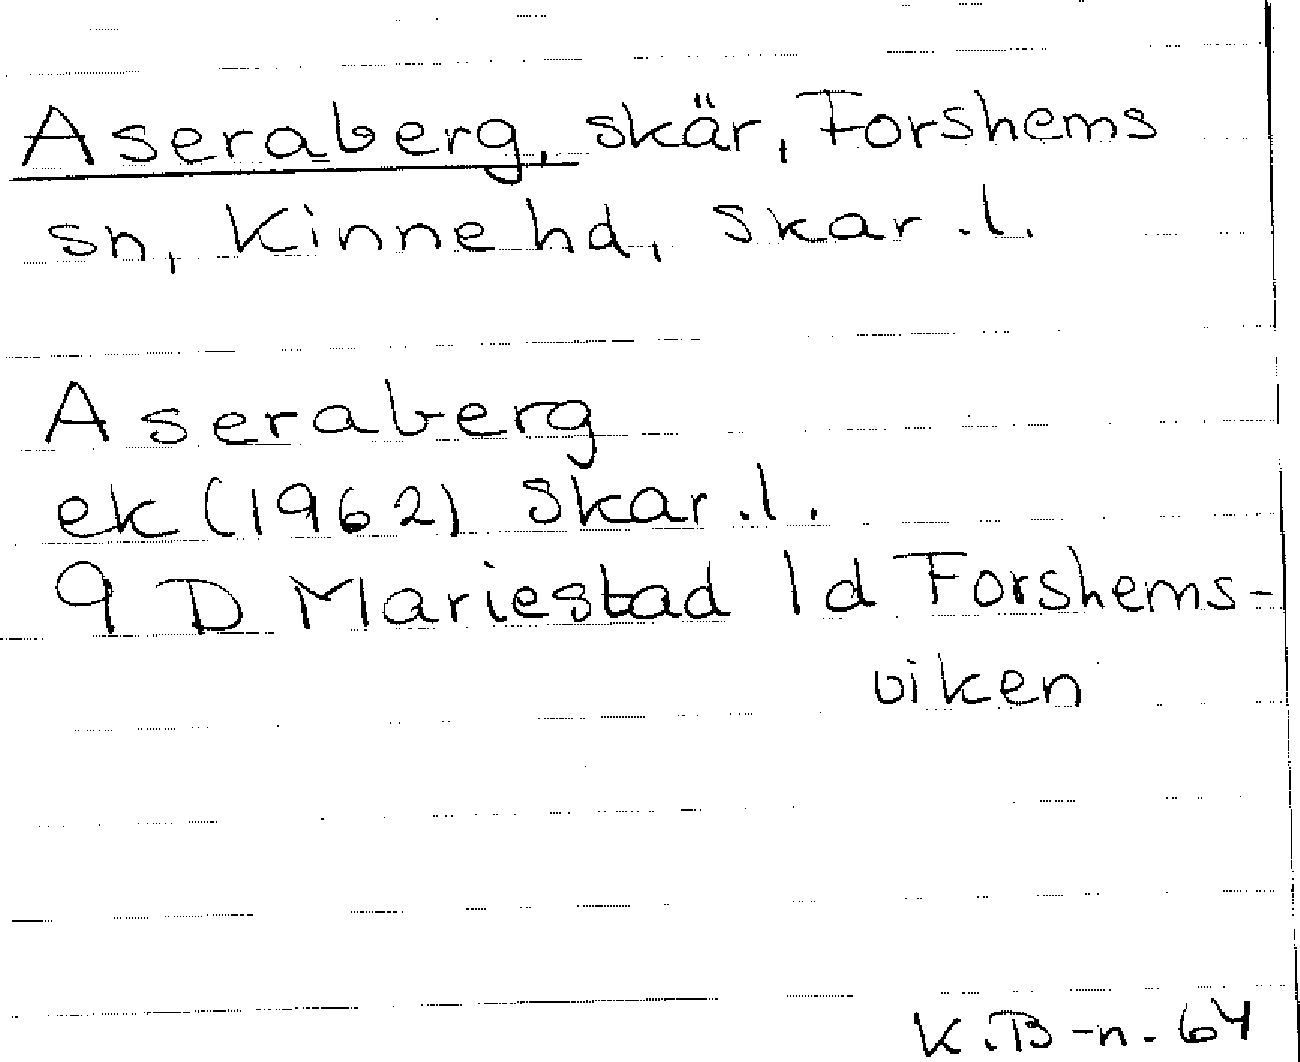 Aseraberg, skär, Forshems
sn, Kinne hd, Skar.l.
Aseraberg
ek (1962) Skar.l.
9 D Mariestad 1d Forshems-
viken
K.B-n. 64